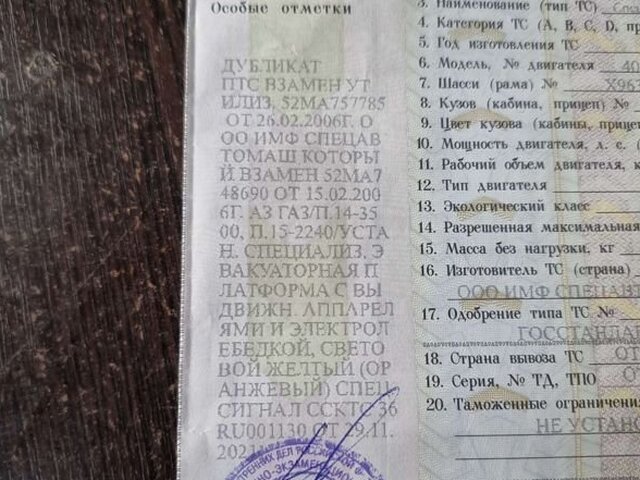 Особые отметки
ДУБЛИКАТ
ПТС ВЗАМЕН УТ
ИЛИЗ. 52МА757785
ОТ 26.02.2006Г. О
ОО ИМФ СПЕЦАВ
ТОМАШ КОТОРЫ
Й ВЗАМЕН 52МА7
48690 ОТ 15.02.200
6Г. АЗ ГАЗ/П.14-35
00, П.15-2240/УСТА
Н. СПЕЦИАЛИЗ. Э
ВАКУАТОРНАЯ П
ЛАТФОРМА С ВЫ
ДВИЖН. АППАРЕЛ
ЯМИ И ЭЛЕКТРОЛ
ЕБЕДКОЙ, СВЕТО
ВОЙ ЖЕЛТЫЙ (ОР
АНЖЕВЫЙ) СПЕЦ
СИГНАЛ ССКТС 36
RU001130 ОТ 29.11.
2021
3. Наименование (тип ТС)
4. Категория ТС (А, В, С, D,
5. Год изготовления ТС
6. Модель, № двигателя 40
7. Шасси (рама) № X96
8. Кузов (кабина, прицеп) №
9. Цвет кузова (кабины,
10. Мощность двигателя, л. с.
11. Рабочий объем двигателя,
12. Тип двигателя
13. Экологический класс
14. Разрешенная максимальная
15. Масса без нагрузки, кг
16. Изготовитель ТС (страна)
ООО ИМФ СПЕЦАВТ
17. Одобрение типа ТС №
ГОССТАНДА
18. Страна вывоза ТС ОТ
19. Серия, № ТД, ТПО
20. Таможенные ограничения
НЕ УСТАНО